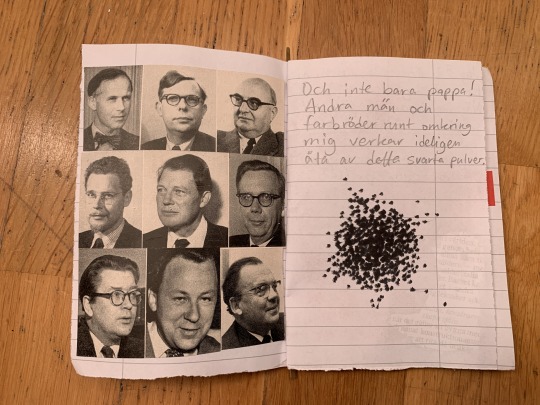 Och inte bara pappa!
Andra män och
farbröder runt omkring
mig verkar ideligen
äta av detta svarta pulver.